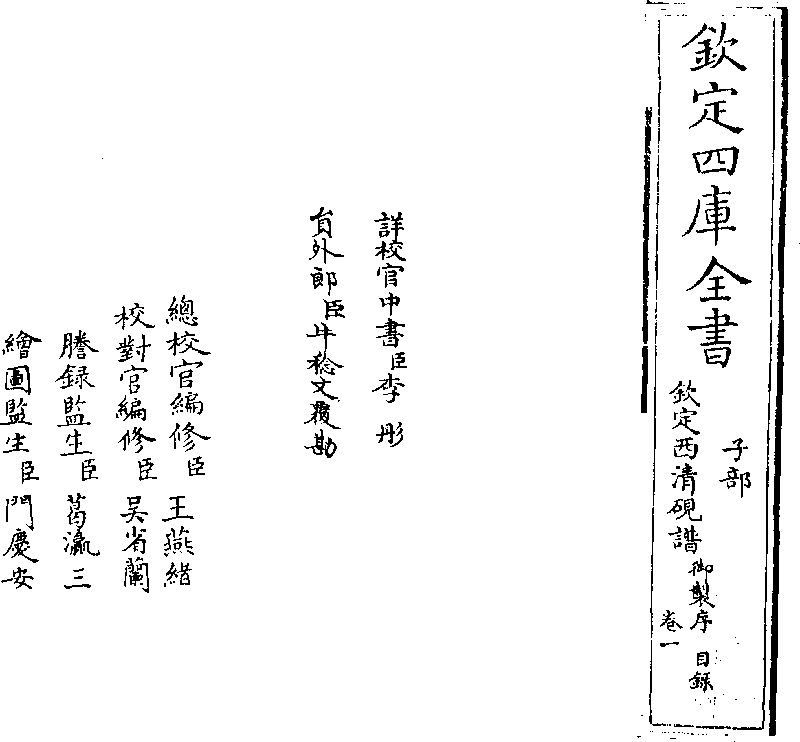 欽定四庫全書
子部
欽定西清硯譜
御製序 目録
卷一
詳校官中書臣李彤
員外郎臣牛稔文覆勘
總校官編修臣王燕緒
校對官編修臣吴省蘭
謄録監生臣葛瀛三
繪圖監生臣門慶安